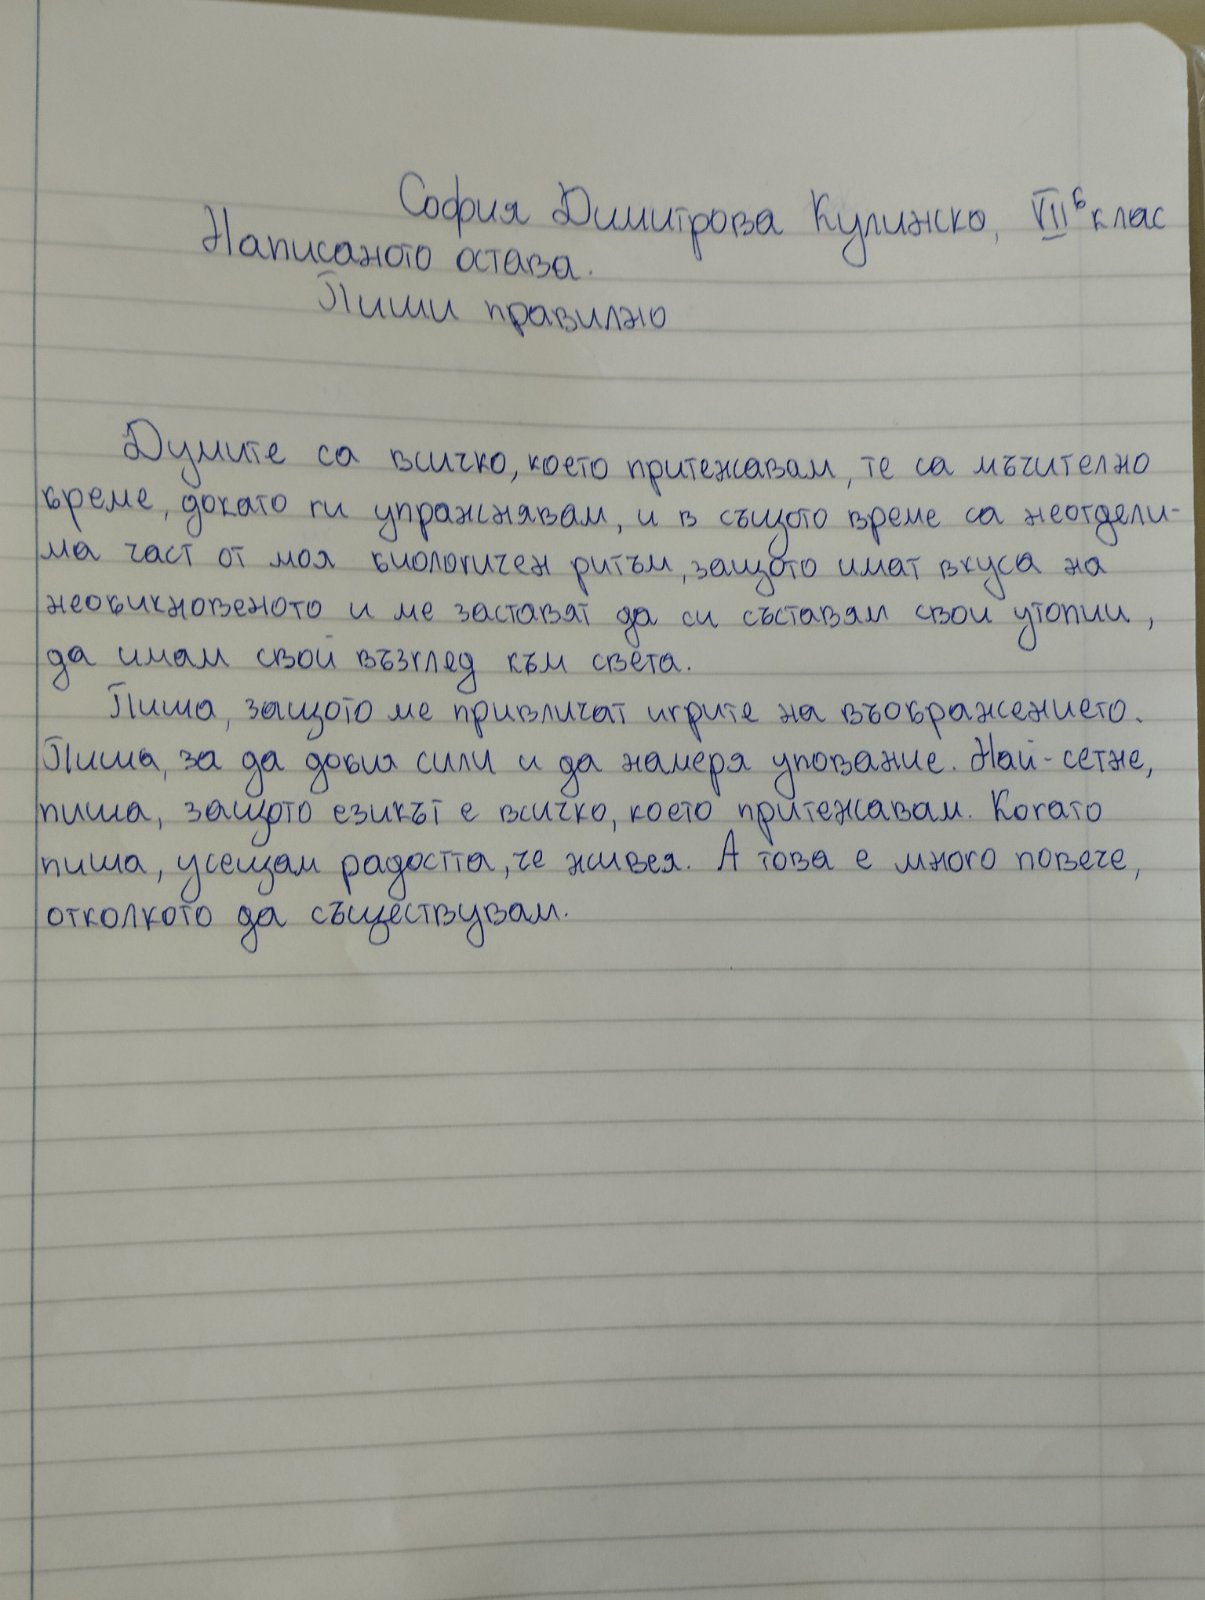 София Димитрова Кулинско, VII б клас
Написаното остава.
Пиши правилно
Думите са всичко, което притежавам, те са мъчително
бреме, докато ги упражнявам, и в същото време са неотдели-
ма част от моя биологичен ритъм, защото имат вкуса на
необикновеното и ме заставят да си съставям свои утопии,
да имам свой възглед към света.
Пиша, защото ме привличат игрите на въображението.
Пиша, за да добия сили и да намеря упование. Най-сетне,
пиша, защото езикът е всичко, което притежавам. Когато
пиша, усещам радостта, че живея. А това е много повече,
отколкото да съществувам.